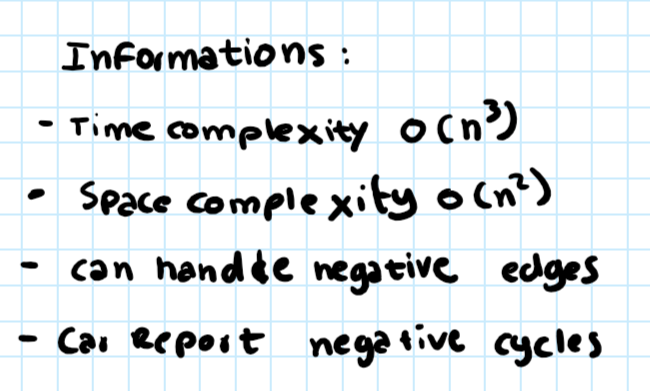 Informations:
- Time complexity O(n³)
- Space complexity O(n²)
- can handle negative edges
- Can Report negative cycles